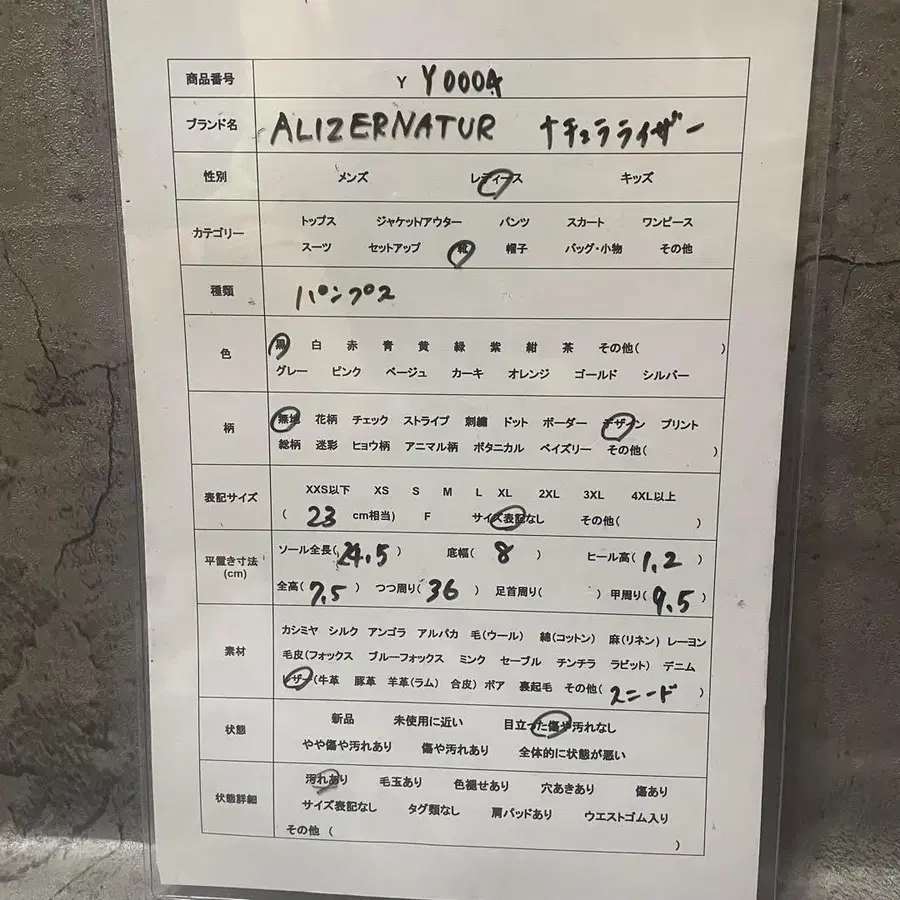 商品番号 Y Y0004
ブランド名 ALIZERNATUR ナチュラライザー
性別 メンズ レディース キッズ
カテゴリー トップス ジャケット/アウター パンツ スカート ワンピース
スーツ セットアップ 靴 帽子 バッグ・小物 その他
種類 パンプス
色 黒 白 赤 青 黄 緑 紫 紺 茶 その他( )
グレー ピンク ベージュ カーキ オレンジ ゴールド シルバー
柄 無地 花柄 チェック ストライプ 刺繍 ドット ボーダー デザイン プリント
総柄 迷彩 ヒョウ柄 アニマル柄 ボタニカル ペイズリー その他( )
表記サイズ XXS以下 XS S M L XL 2XL 3XL 4XL以上
( 23 cm相当) F サイズ表記なし その他( )
平置き寸法 (cm) ソール全長( 24.5 ) 底幅( 8 ) ヒール高( 1.2 )
全高( 7.5 ) つつ周り( 36 ) 足首周り( ) 甲周り( 9.5 )
素材 カシミヤ シルク アンゴラ アルパカ 毛(ウール) 綿(コットン) 麻(リネン) レーヨン
毛皮(フォックス ブルーフォックス ミンク セーブル チンチラ ラビット) デニム
レザー(牛革 豚革 羊革(ラム) 合皮) ボア 裏起毛 その他( スニード )
状態 新品 未使用に近い 目立った傷や汚れなし
やや傷や汚れあり 傷や汚れあり 全体的に状態が悪い
状態詳細 汚れあり 毛玉あり 色褪せあり 穴あきあり 傷あり
サイズ表記なし タグ類なし 肩パッドあり ウエストゴム入り
その他 ( )